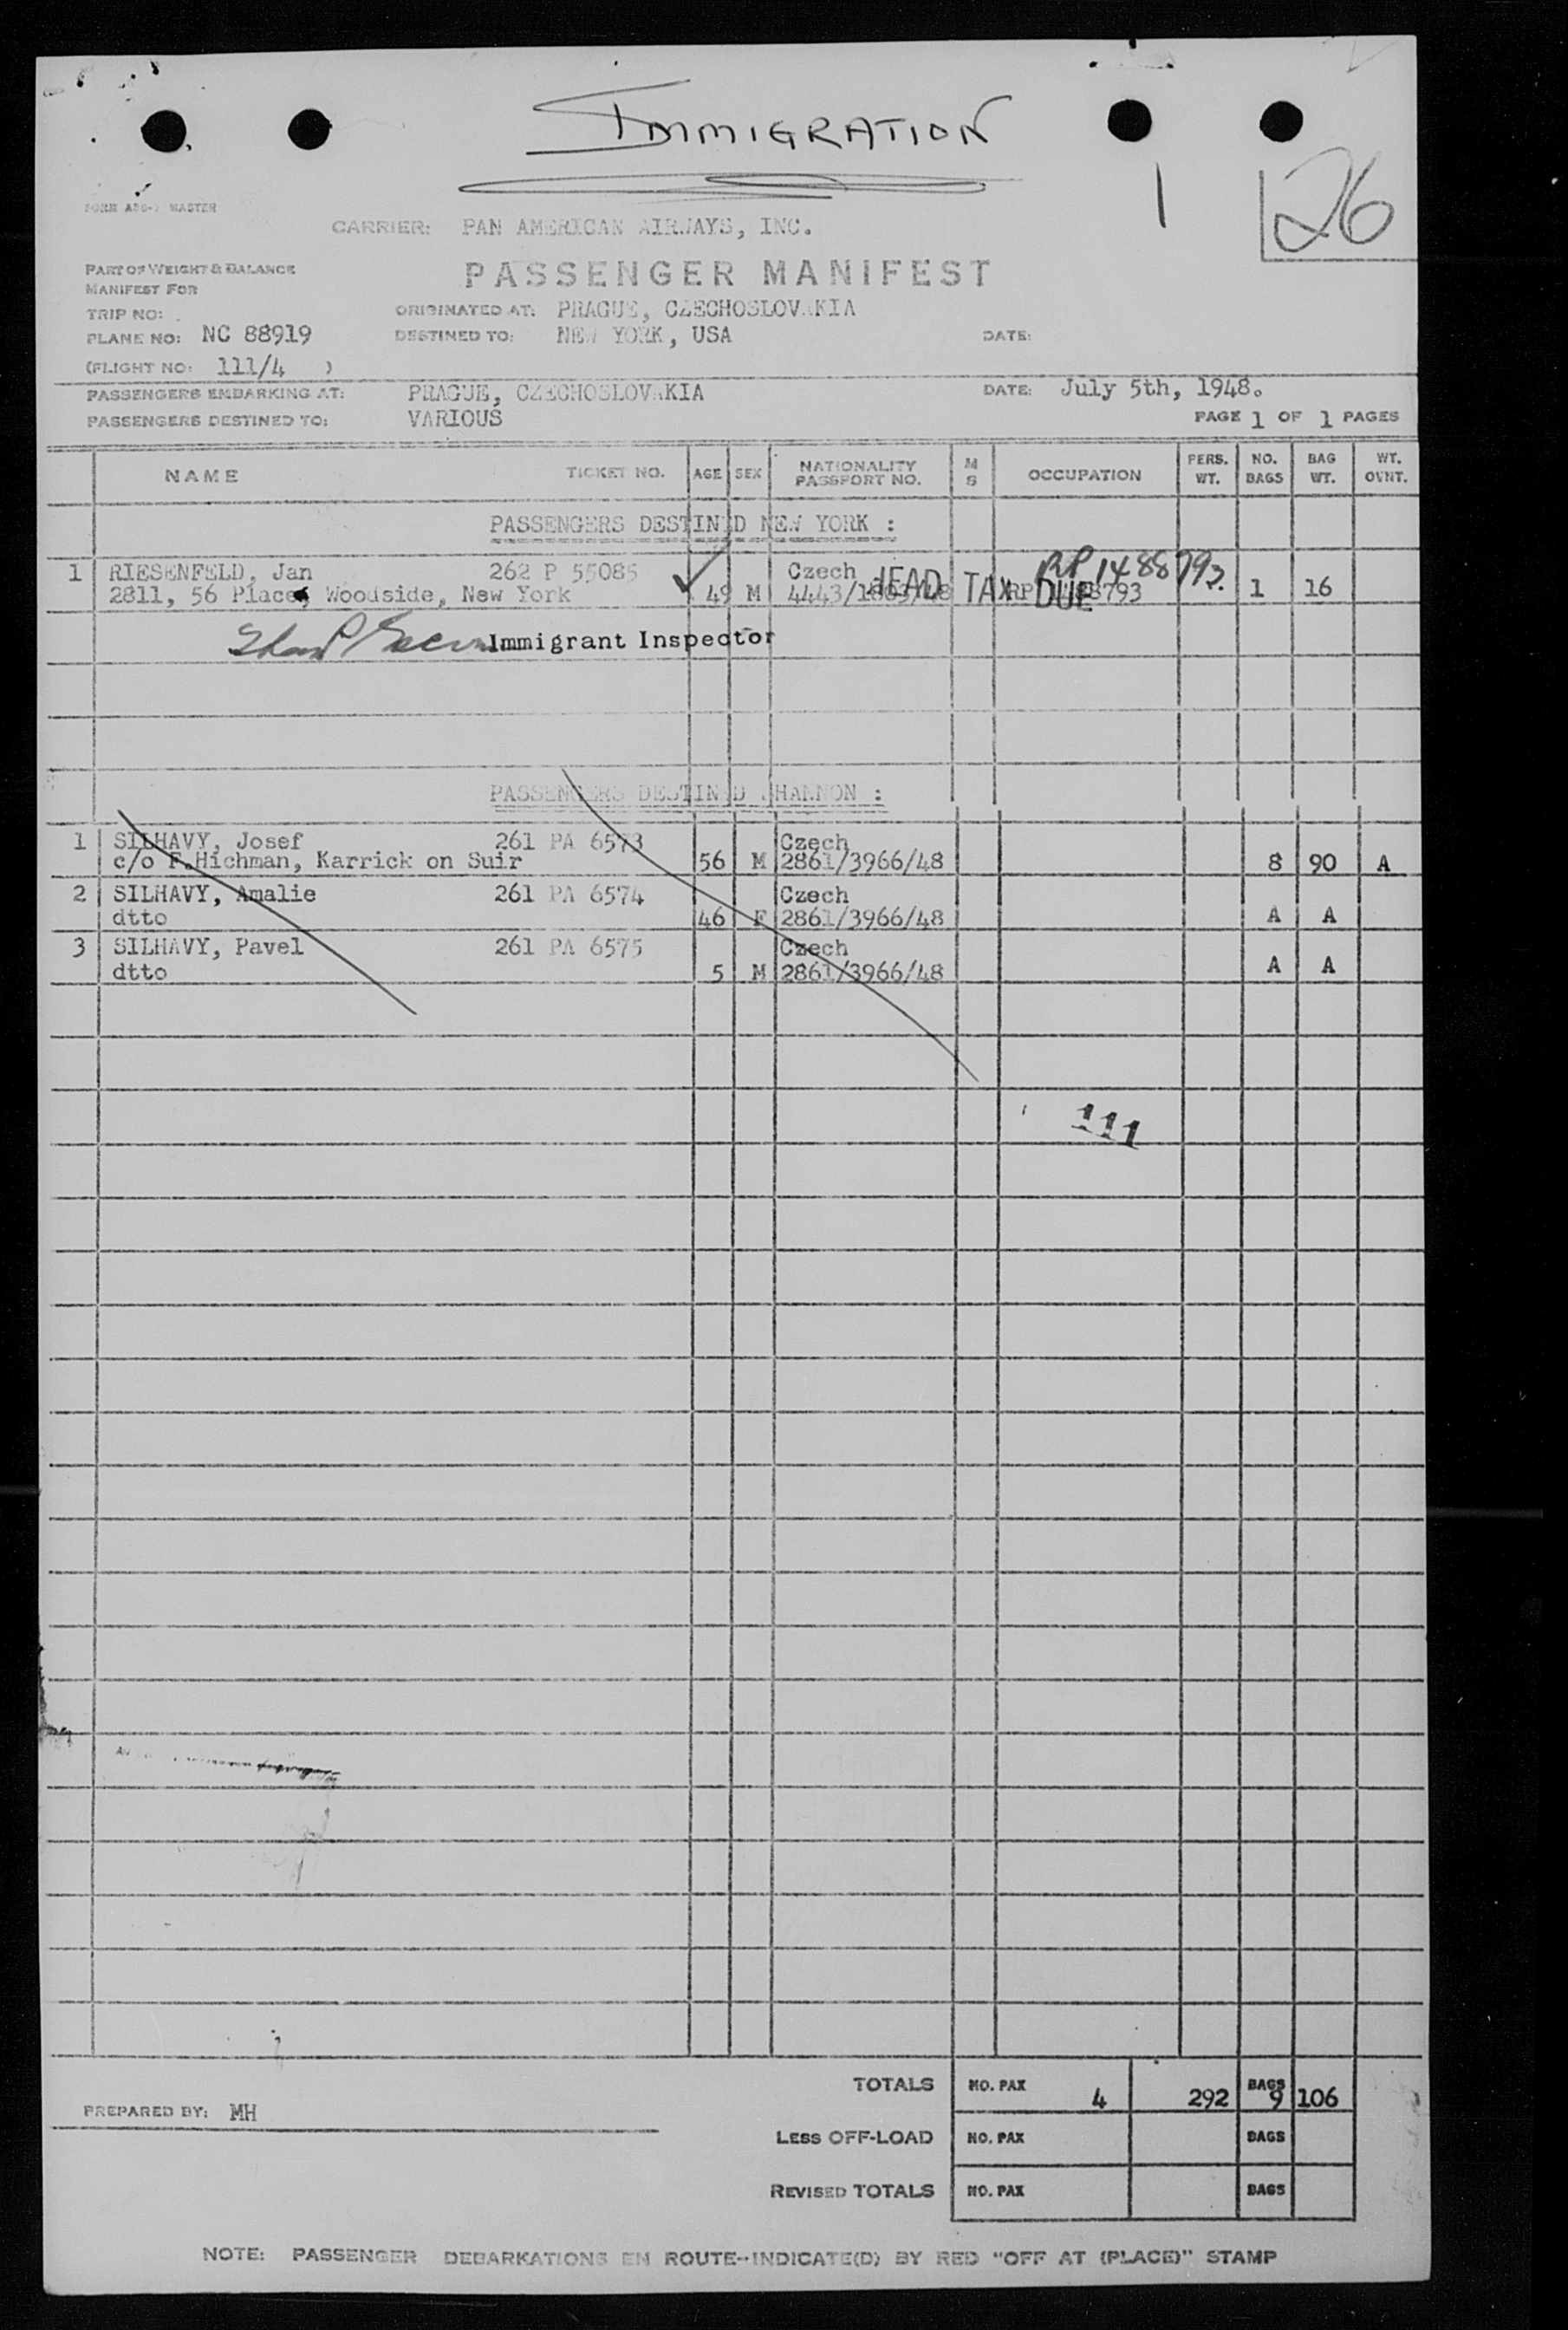 IMMIGRATION
1 26
FORM MASTER
CARRIER: PAN AMERICAN AIRWAYS, INC.
PASSENGER MANIFEST
PART OF WEIGHT & BALANCE
MANIFEST FOR
TRIP NO:
ORIGINATED AT: PRAGUE, CZECHOSLOVAKIA
PLANE NO: NC 88919 DESTINED TO: NEW YORK, USA DATE:
(FLIGHT NO: 111/4 )
PASSENGERS EMBARKING AT: PRAGUE, CZECHOSLOVAKIA DATE: July 5th, 1948.
PASSENGERS DESTINED TO: VARIOUS PAGE 1 OF 1 PAGES
NAME TICKET NO. AGE SEX NATIONALITY PASSPORT NO. M S OCCUPATION PERS. WT. NO. BAGS BAG WT. WT. OVNT.
PASSENGERS DESTINED NEW YORK :
1 RIESENFELD, Jan 262 P 55085 Czech RP 1488793
2811, 56 Place, Woodside, New York 49 M HEAD TAX DUE 1 16
Immigrant Inspector
PASSENGERS DESTINED SHANNON :
1 SILHAVY, Josef 261 PA 6573 Czech
c/o F.Hichman, Karrick on Suir 56 M 2861/3966/48 8 90 A
2 SILHAVY, Amalie 261 PA 6574 Czech
dtto 46 F 2861/3966/48 A A
3 SILHAVY, Pavel 261 PA 6575 Czech
dtto 5 M 2861/3966/48 A A
111
TOTALS NO. PAX 4 292 BAGS 9 106
PREPARED BY: MH
LESS OFF-LOAD NO. PAX BAGS
REVISED TOTALS NO. PAX BAGS
NOTE: PASSENGER DEBARKATIONS EN ROUTE--INDICATE(D) BY RED "OFF AT (PLACE)" STAMP